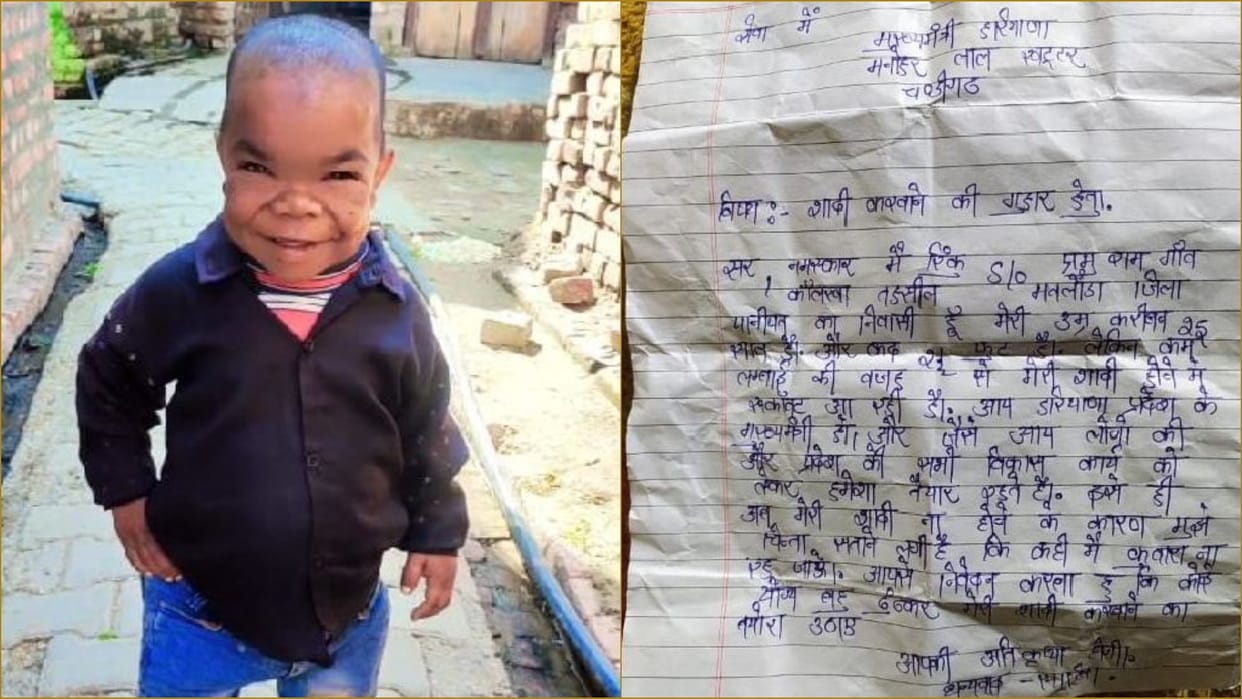 सेवा में
मुख्यमंत्री हरियाणा
मनोहर लाल खट्टर
चण्डीगढ
विषय :- शादी करवाने की गुहार हेतु.
सर, नमस्कार मैं रिंकु S/o प्रमु राम गाँव
कालखा तहसील मतलौडा जिला
पानीपत का निवासी हूँ मेरी उम्र करीबन 25
साल है. और कद 2½ फुट है. लेकिन कम
लम्बाई की वजह से मेरी शादी होने मे
रूकावट आ रही है. आप हरियाणा प्रदेश के
मुख्यमंत्री हो, और जैसे आप लोगो की
और प्रदेश की सभी विकास कार्य को
लेकर हमेशा तैयार रहते है. इसे ही
अब मेरी शादी ना होने के कारण मुझे
चिन्ता सताने लगी है कि कही मै कुवारा ना
रह जाऊ. आपसे निवेदन करता हू कि कोई
योग्य बहु ढुंढकर मेरी शादी करवाने का
उठाए
आपकी अति कृपा होगी.
धन्यवाद -